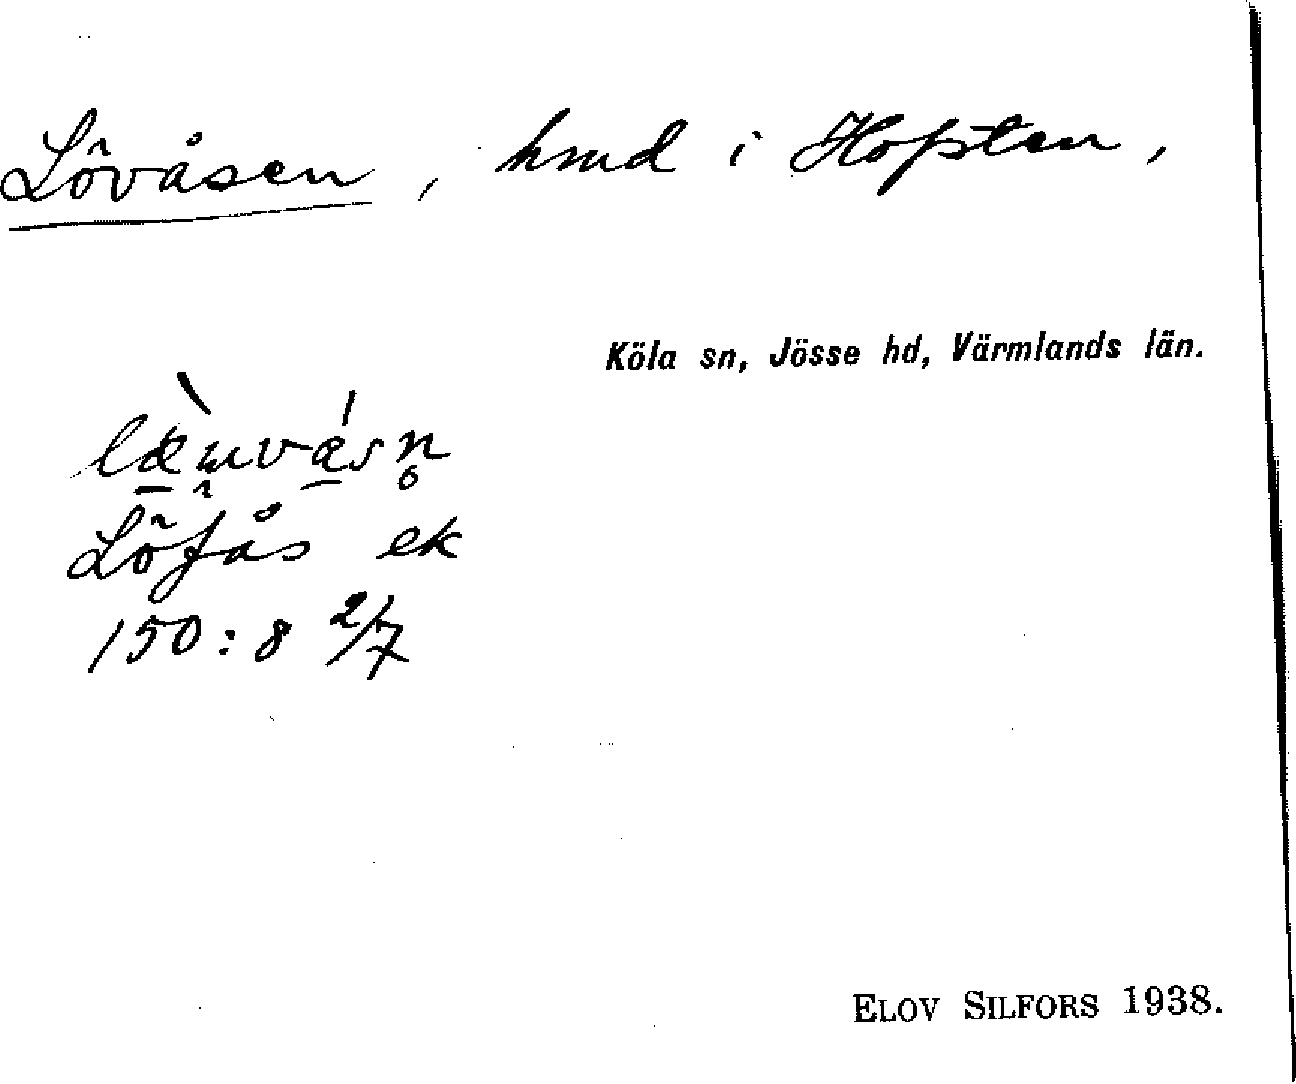 Lövåsen, hmd i Hopsten,
Köla sn, Jösse hd, Värmlands län.
Löfås ek
150:8 2/7
ELOV SILFORS 1938.